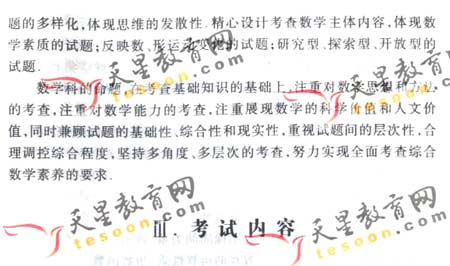 题的多样化,体现思维的发散性.精心设计考查数学主体内容,体现数
学素质的试题;反映数、形运动变化的试题;研究型、探索型、开放型的
试题.
数学科的命题,在考查基础知识的基础上,注重对数学思想和方法
的考查,注重对数学能力的考查,注重展现数学的科学价值和人文价
值,同时兼顾试题的基础性、综合性和现实性,重视试题间的层次性,合
理调控综合程度,坚持多角度、多层次的考查,努力实现全面考查综合
数学素养的要求.
天星教育网
tesoon.com
天星教育网
tesoon.com
天星教育网
tesoon.com
天星教育网
tesoon.com
Ⅲ.考试内容